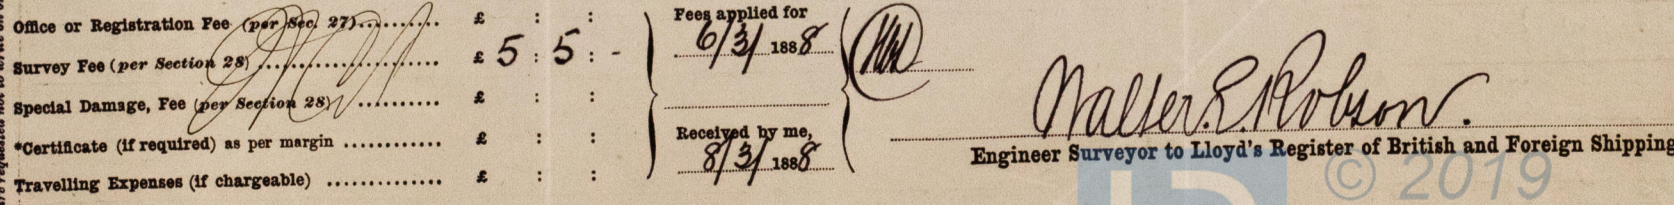 Office or Registration Fee (per Sec. 27)........... £ : :
Survey Fee (per Section 28)........................ £ 5 : 5 : -
Special Damage, Fee (per Section 28) ........... £ : :
*Certificate (if required) as per margin ............ £ : :
Travelling Expenses (if chargeable) .............. £ : :
Fees applied for
6/3/1888
Received by me,
8/3/1888
Walter E. Robson.
Engineer Surveyor to Lloyd's Register of British and Foreign Shipping
© 2019